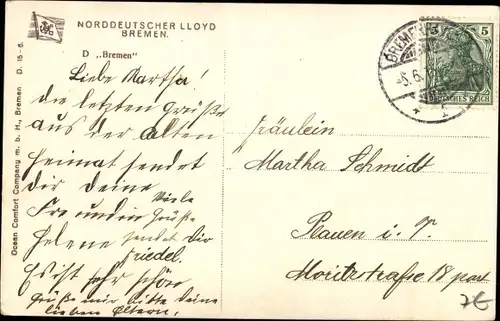 NORDDEUTSCHER LLOYD
BREMEN.
D „Bremen"
Liebe Martha!
die letzten Grüße
aus der alten
Heimat sendet
Dir Deine
Freundin
Helene
Viele
Grüße
sendet Dir
Friedel.
Es ist sehr schön
Grüße mir bitte Deine
lieben Eltern.
Ocean Comfort Company m. b. H., Bremen D. 15-6.
5 5
DEUTSCHES REICH
BREMERHAVEN
-5.6.
* 1
Fräulein
Martha Schmidt
Plauen i. V.
Moritzstraße 18 part
7€